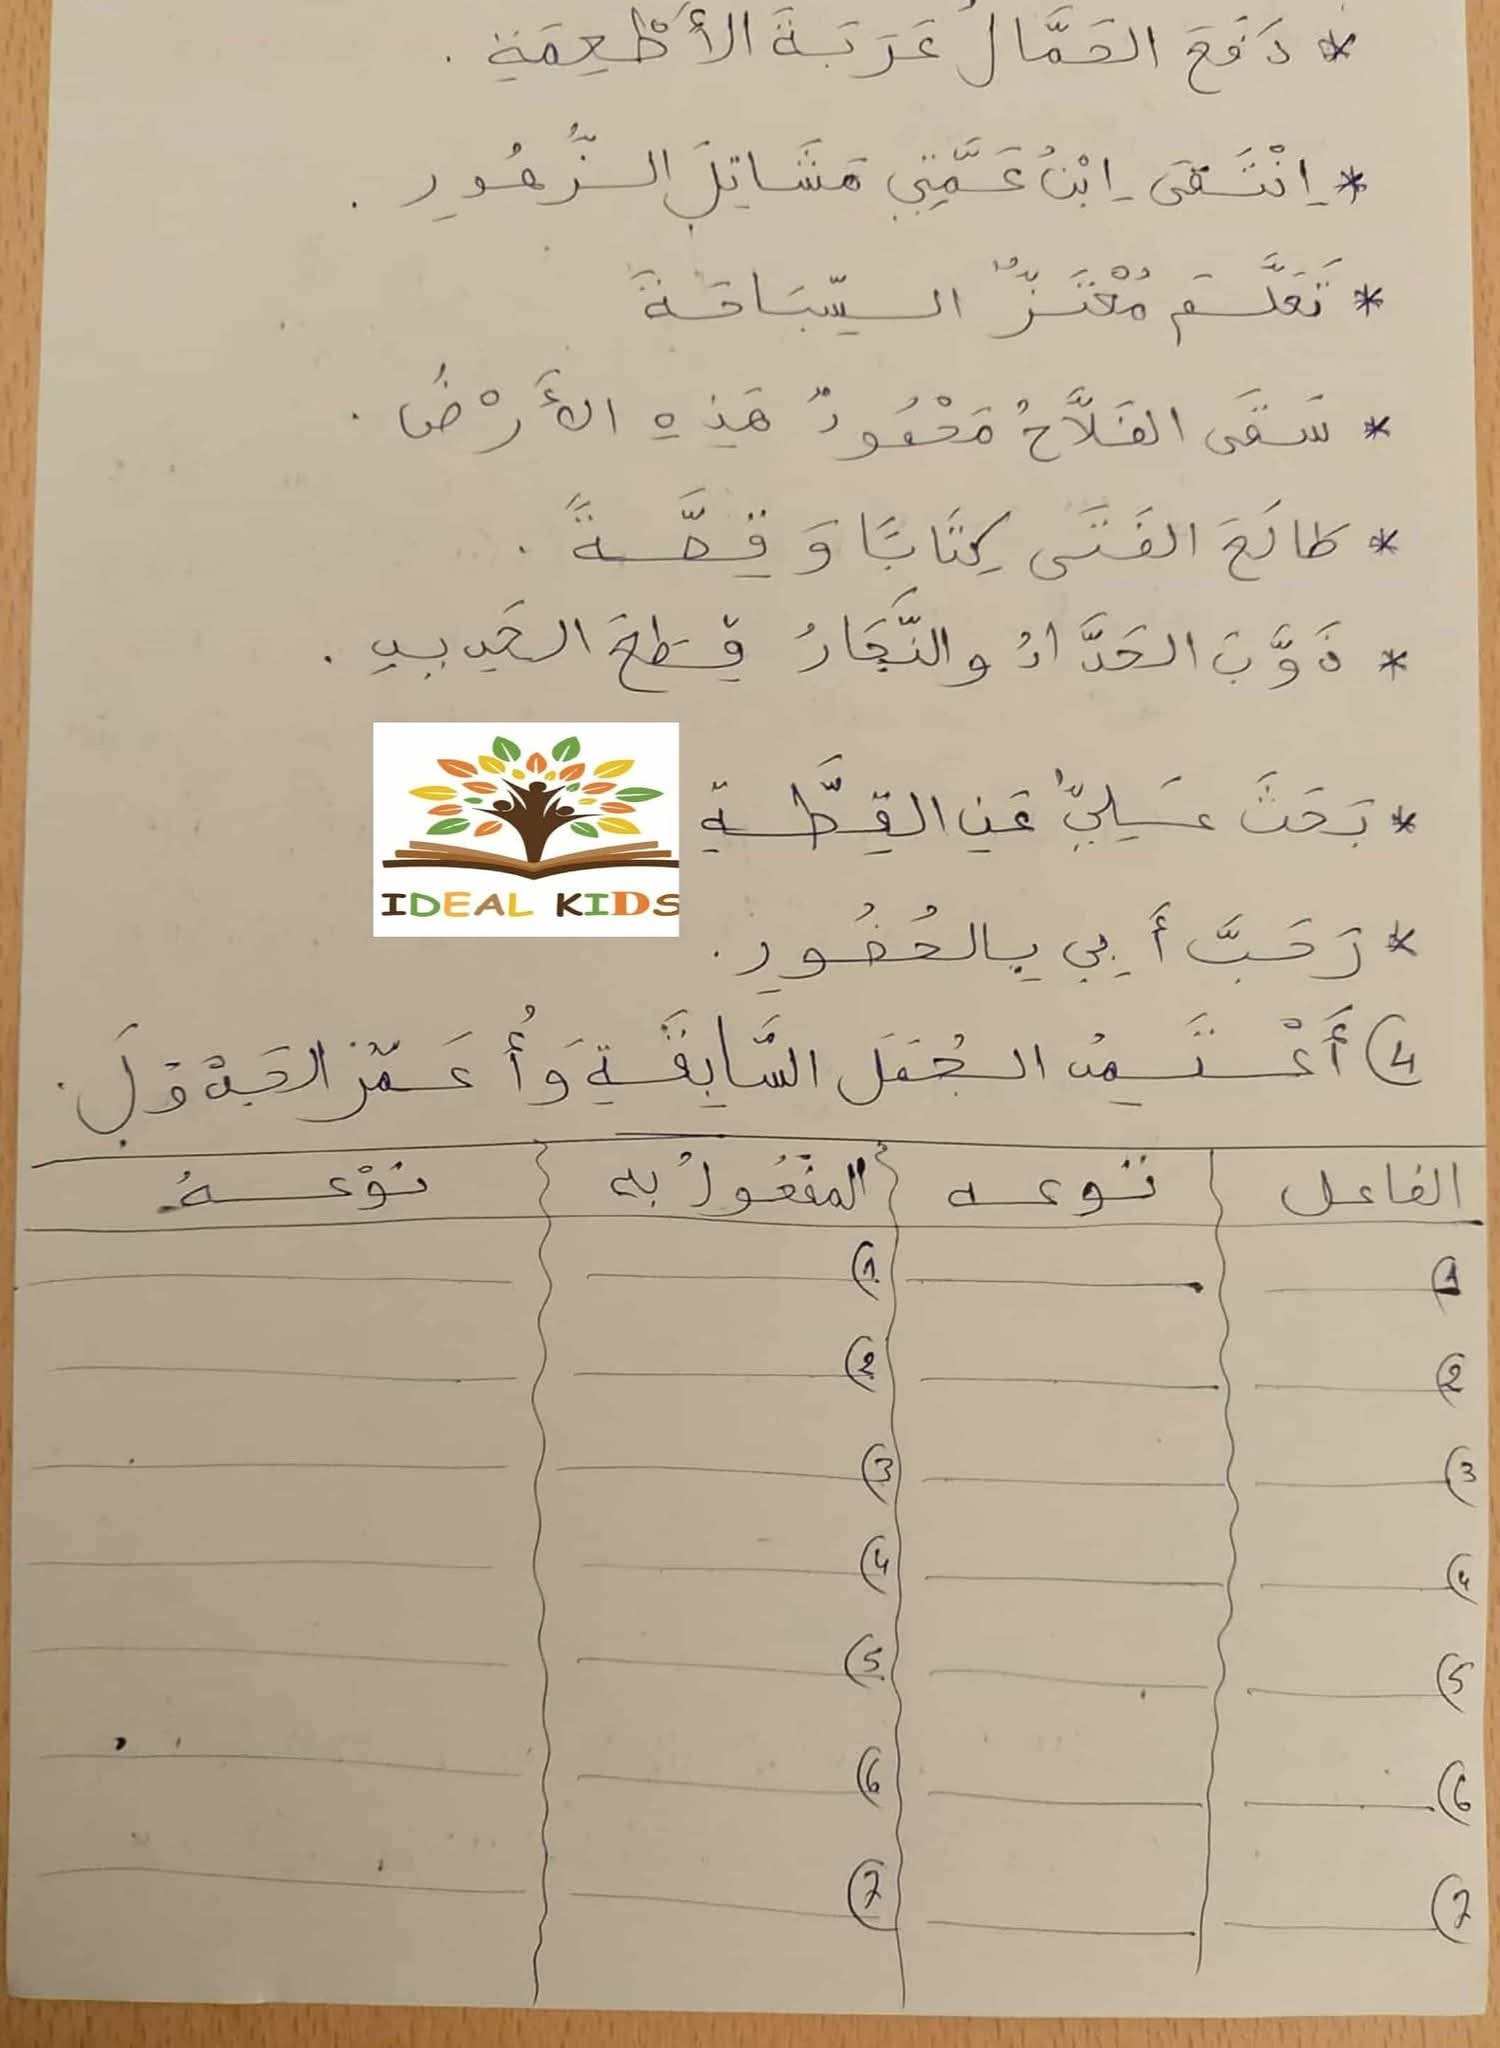 * دَفَعَ الحَمَّالُ عَرَبَةَ الأَطْعِمَةِ .
* اِنْتَقَى اِبْنُ عَمَّتِي مَشَاتِلَ الزُّهُورِ .
* تَعَلَّمَ مُعْتَزٌّ السِّبَاحَةَ
* سَقَى الفَلَّاحُ مَحْمُودٌ هَذِهِ الأَرْضَ .
* طَالَعَ الفَتَى كِتَابًا وَ قِصَّةً .
* ذَوَّبَ الحَدَّادُ والنَّجَّارُ قِطَعَ الحَدِيدِ .
* بَحَثَ عَلِيٌّ عَنِ القِطَّةِ
IDEAL KIDS
* رَحَّبَ أَبِي بِالحُضُورِ .
4 أَعْتَمِدُ الجُمَلَ السَّابِقَةِ وَأُعَمِّرُ الجَدْوَلَ .
الفاعل نوعه المفعُولُ به نَوْعهُ
1 1
2 2
3 3
4 4
5 5
6 6
7 7